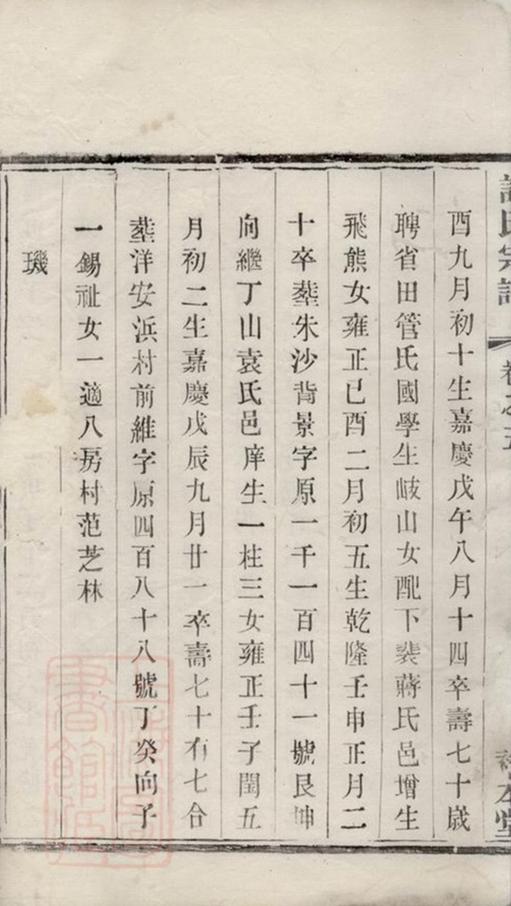 氏宗譜 卷之五
酉九月初十生嘉慶戊午八月十四卒壽七十歲
聘省田管氏國學生岐山女配下裴蔣氏邑增生
飛熊女雍正己酉二月初五生乾隆壬申正月二
十卒塟朱沙背景字原一千一百四十一號艮坤
向繼丁山袁氏邑庠生一柱三女雍正壬子閏五
月初二生嘉慶戊辰九月廿一卒壽七十有七合
塟洋安浜村前維字原四百八十八號丁癸向子
一錫祉女一適八房村范芝林
璣